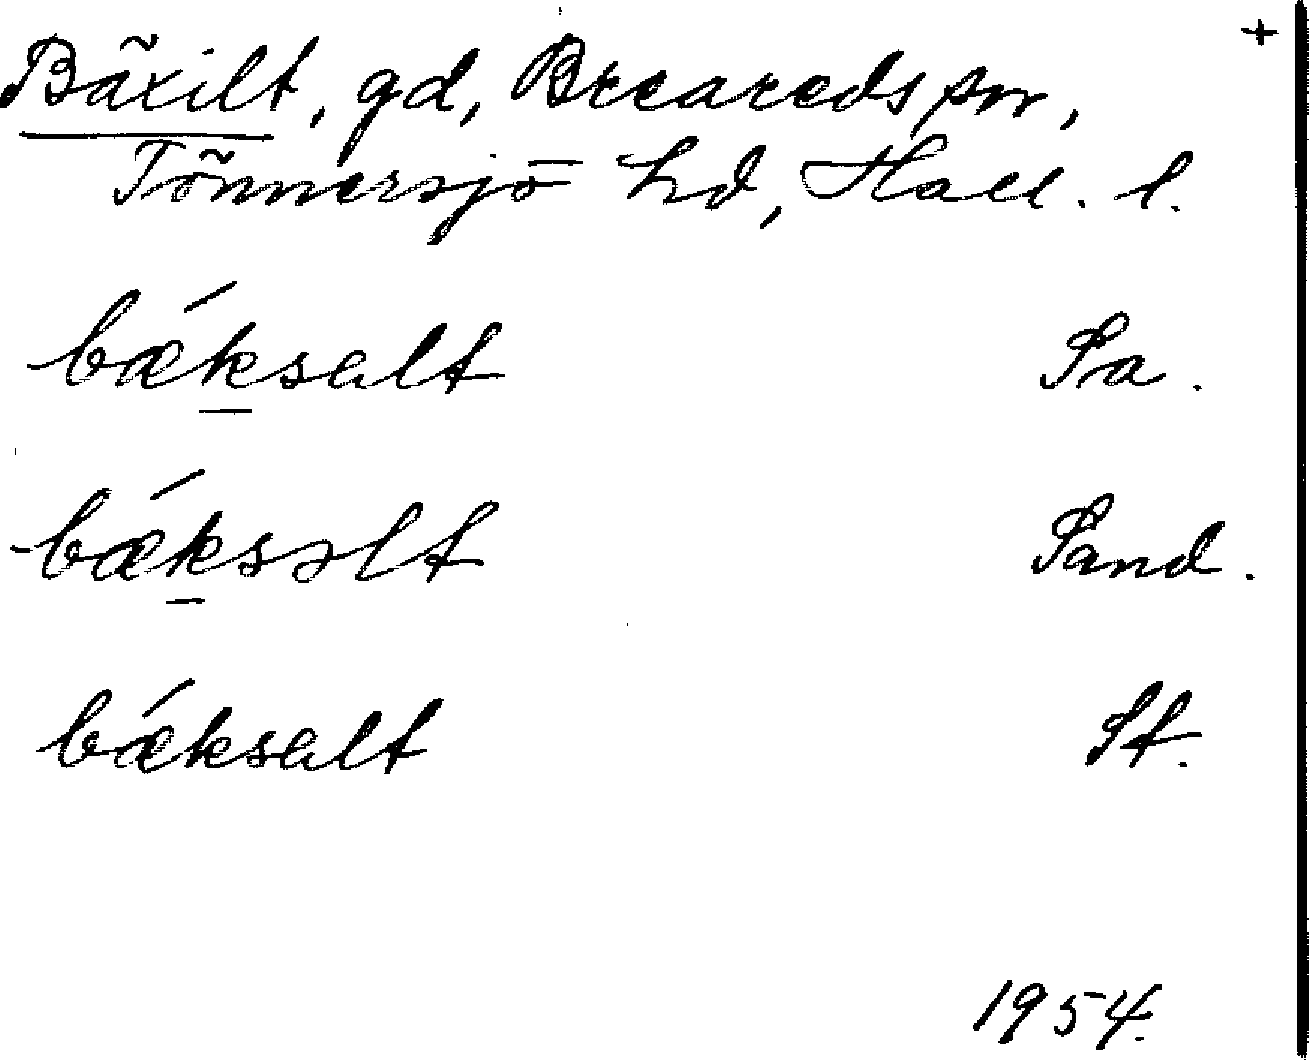 +
Bäxilt, gd, Breareds sn,
Tönnersjö hd, Hall. l.
bǽksalt Sa.
bǽksɔlt Sand.
bǽksalt St.
1954.